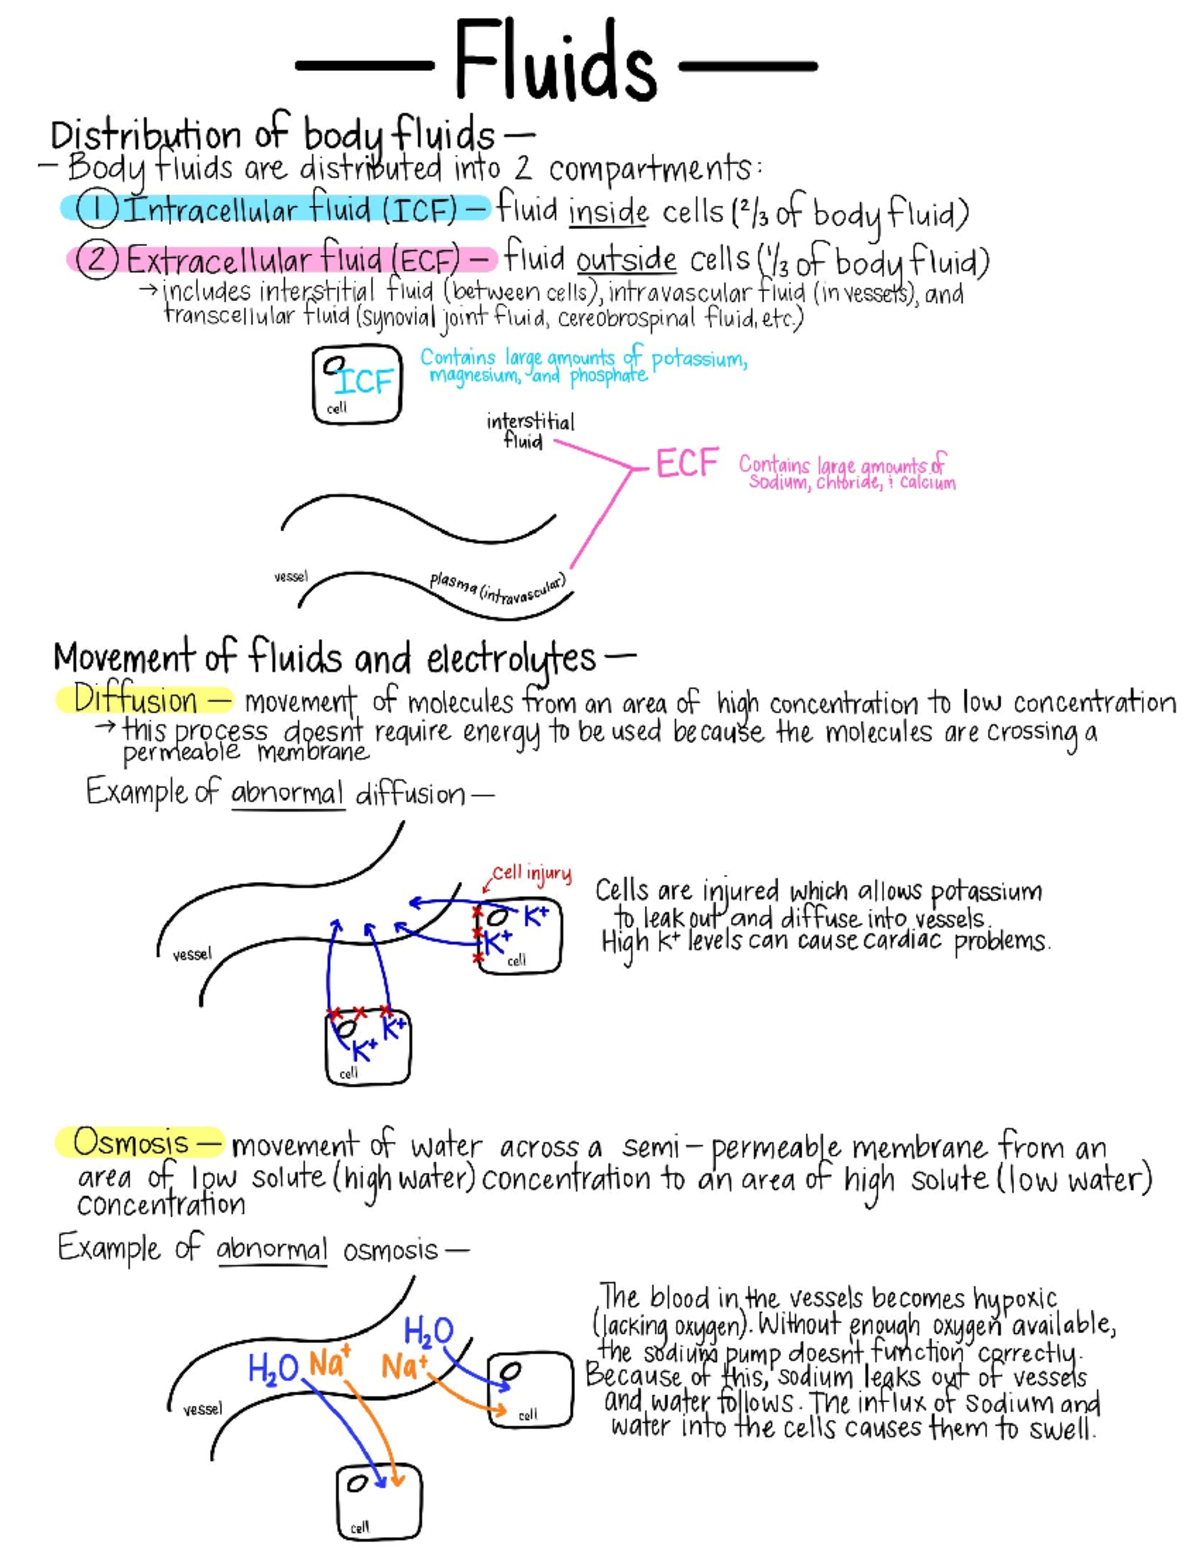 — Fluids —
Distribution of body fluids —
— Body fluids are distributed into 2 compartments:
① Intracellular fluid (ICF) — fluid inside cells (2/3 of body fluid)
② Extracellular fluid (ECF) — fluid outside cells (1/3 of body fluid)
→ includes interstitial fluid (between cells), intravascular fluid (in vessels), and
transcellular fluid (synovial joint fluid, cereobrospinal fluid, etc.)
ICF
cell
Contains large amounts of potassium,
magnesium, and phosphate
interstitial
fluid
ECF
Contains large amounts of
Sodium, chloride, & calcium
vessel
plasma (intravascular)
Movement of fluids and electrolytes —
Diffusion — movement of molecules from an area of high concentration to low concentration
→ this process doesn't require energy to be used because the molecules are crossing a
permeable membrane
Example of abnormal diffusion —
cell injury
K+
K+
cell
vessel
K+
K+
cell
Cells are injured which allows potassium
to leak out and diffuse into vessels.
High K+ levels can cause cardiac problems.
Osmosis — movement of water across a semi-permeable membrane from an
area of low solute (high water) concentration to an area of high solute (low water)
concentration
Example of abnormal osmosis —
H₂O
H₂O Na+ Na+
vessel
cell
cell
The blood in the vessels becomes hypoxic
(lacking oxygen). Without enough oxygen available,
the sodium pump doesn't function correctly.
Because of this, sodium leaks out of vessels
and water follows. The influx of sodium and
water into the cells causes them to swell.